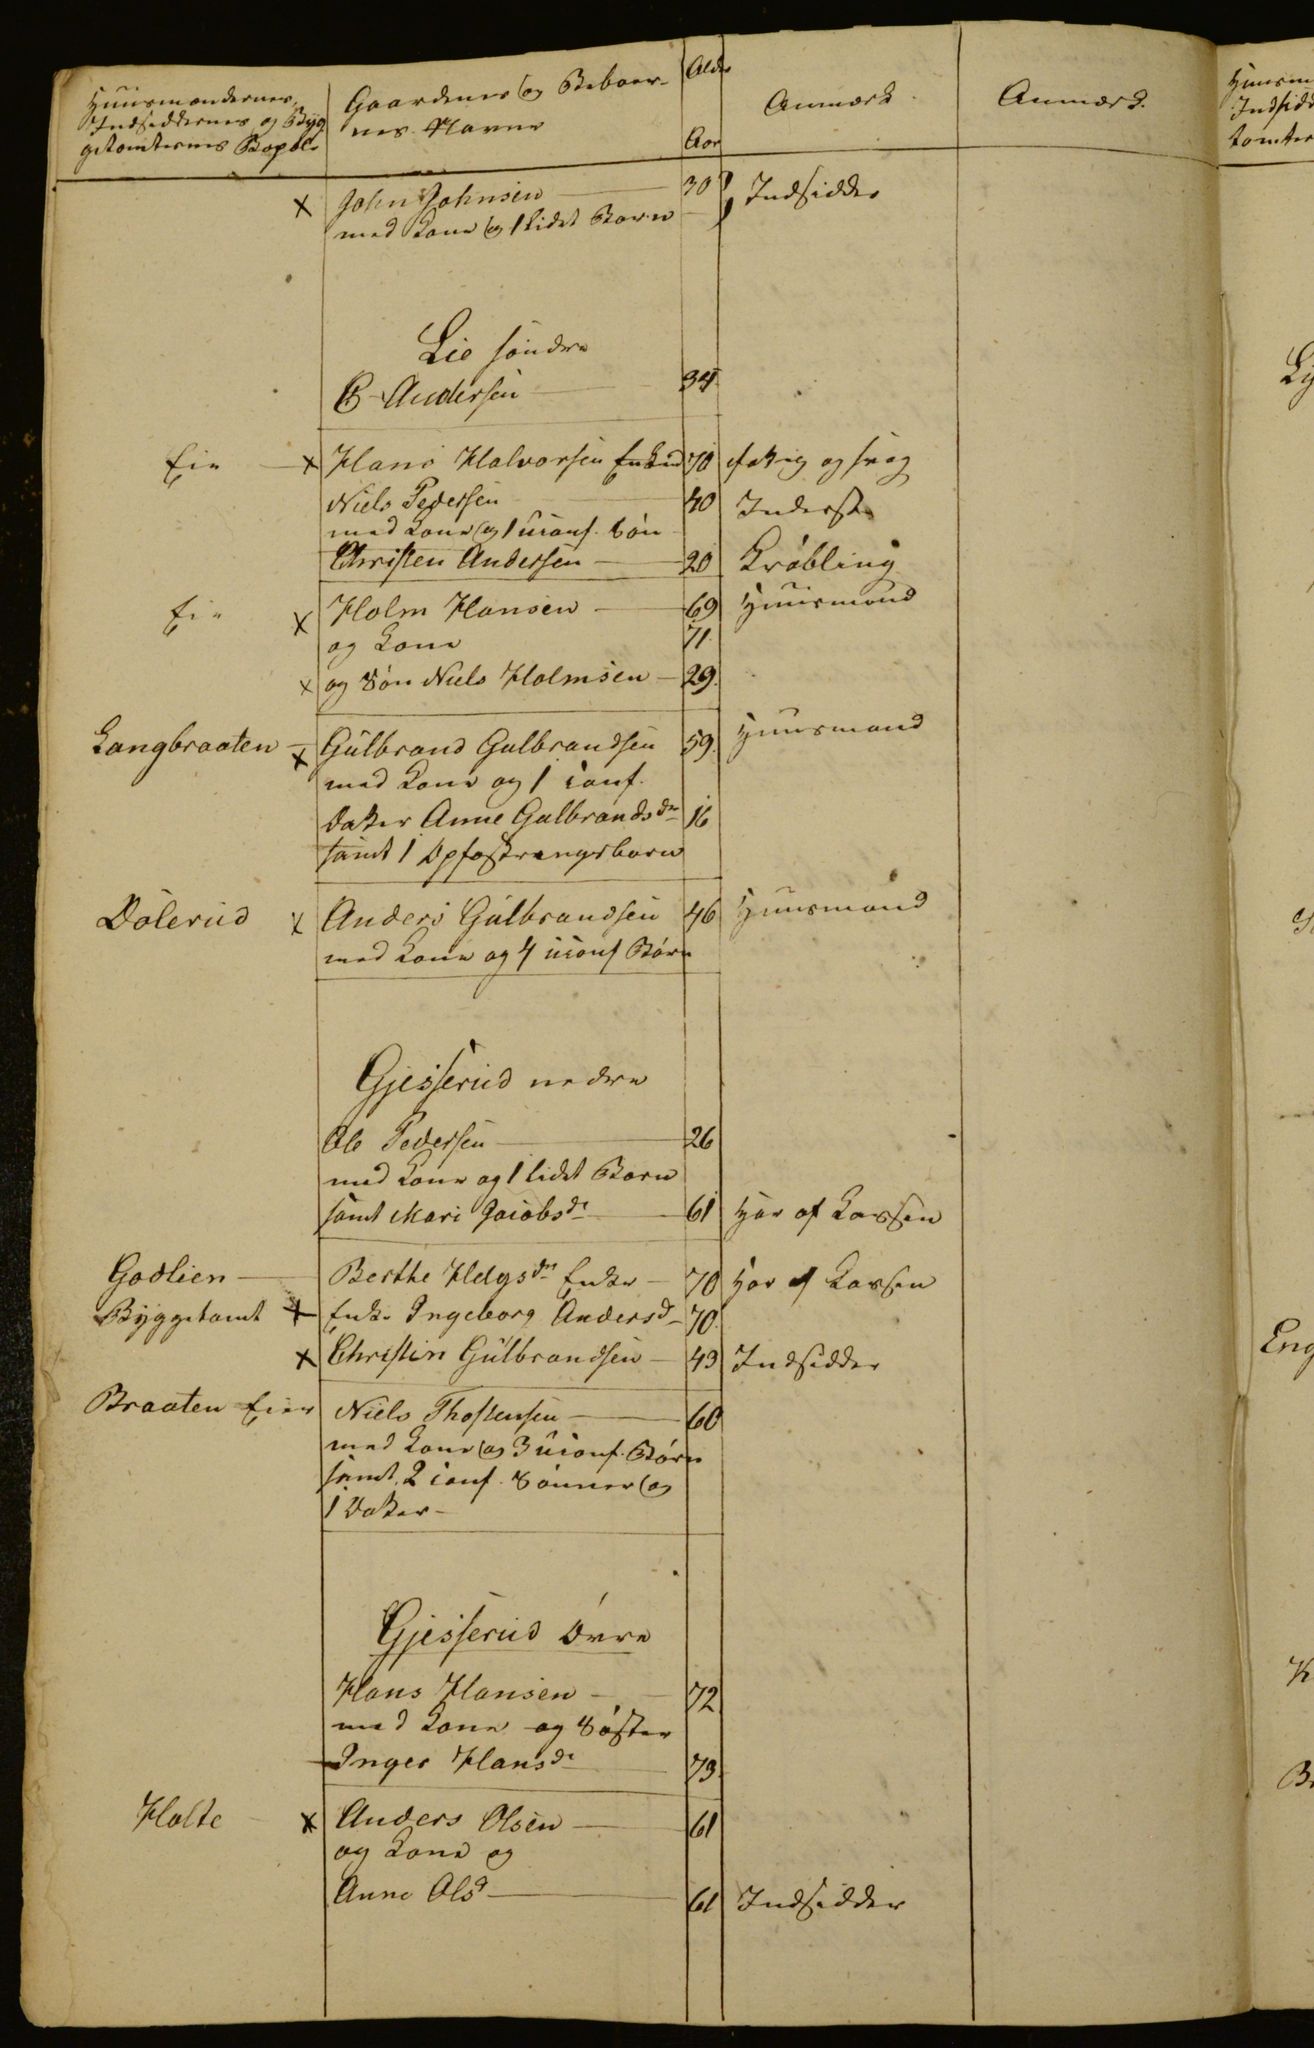 Huusmændenes,
Indsiddernes og Byg-
getomternes Bopæl
Gaardenes og Beboer-
nes Navne
Alder
Aar
Anmærk.
Anmærk.
x John Johnsen 30 Indsidder
med Kone og 1 lidet Barn
Lie søndre
P Andersen 34
Eie x Hans Halvorsen Enkem 70 fattig og svag
Niels Pedersen 40 Inderst
med Kone og 1 uconf. Søn
Christen Andersen 20 Krøbling
Eie x Holm Hansen 69 Huusmand
og Kone 71
x og Søn Niels Holmsen 29.
Langbraaten x Gulbrand Gulbrandsen 59. Huusmand
med Kone og 1 conf.
Datter Anne Gulbrandsdr 16
samt 1 Opfostringsbarn
Dolerud x Anders Gulbrandsen 46 Huusmand
med Kone og 4 uconf Børn
Gjesserud nedre
Ole Pedersen 26
med Kone og 1 lidet Barn
samt Mari Jacobsdr 61 Har af Kassen
Godlien Berthe Helgsdr Enke 70 Har af Kassen
Byggetomt x Enke Ingeborg Andersd 70.
x Christin Gulbrandsen 49 Indsidder
Braaten Eier Niels Thostensen 60
med Kone og 3 uconf. Børn
samt 2 conf. Sønner og
1 Datter
Gjesserud øvre
Hans Hansen 72
med Kone og Søster
Inger Hansdr 73.
Holte x Anders Olsen 61
og Kone og
Anne Olsd 61 Indsidder
Huusm
Indsidd
tomter
Ly
Eng
K
Br